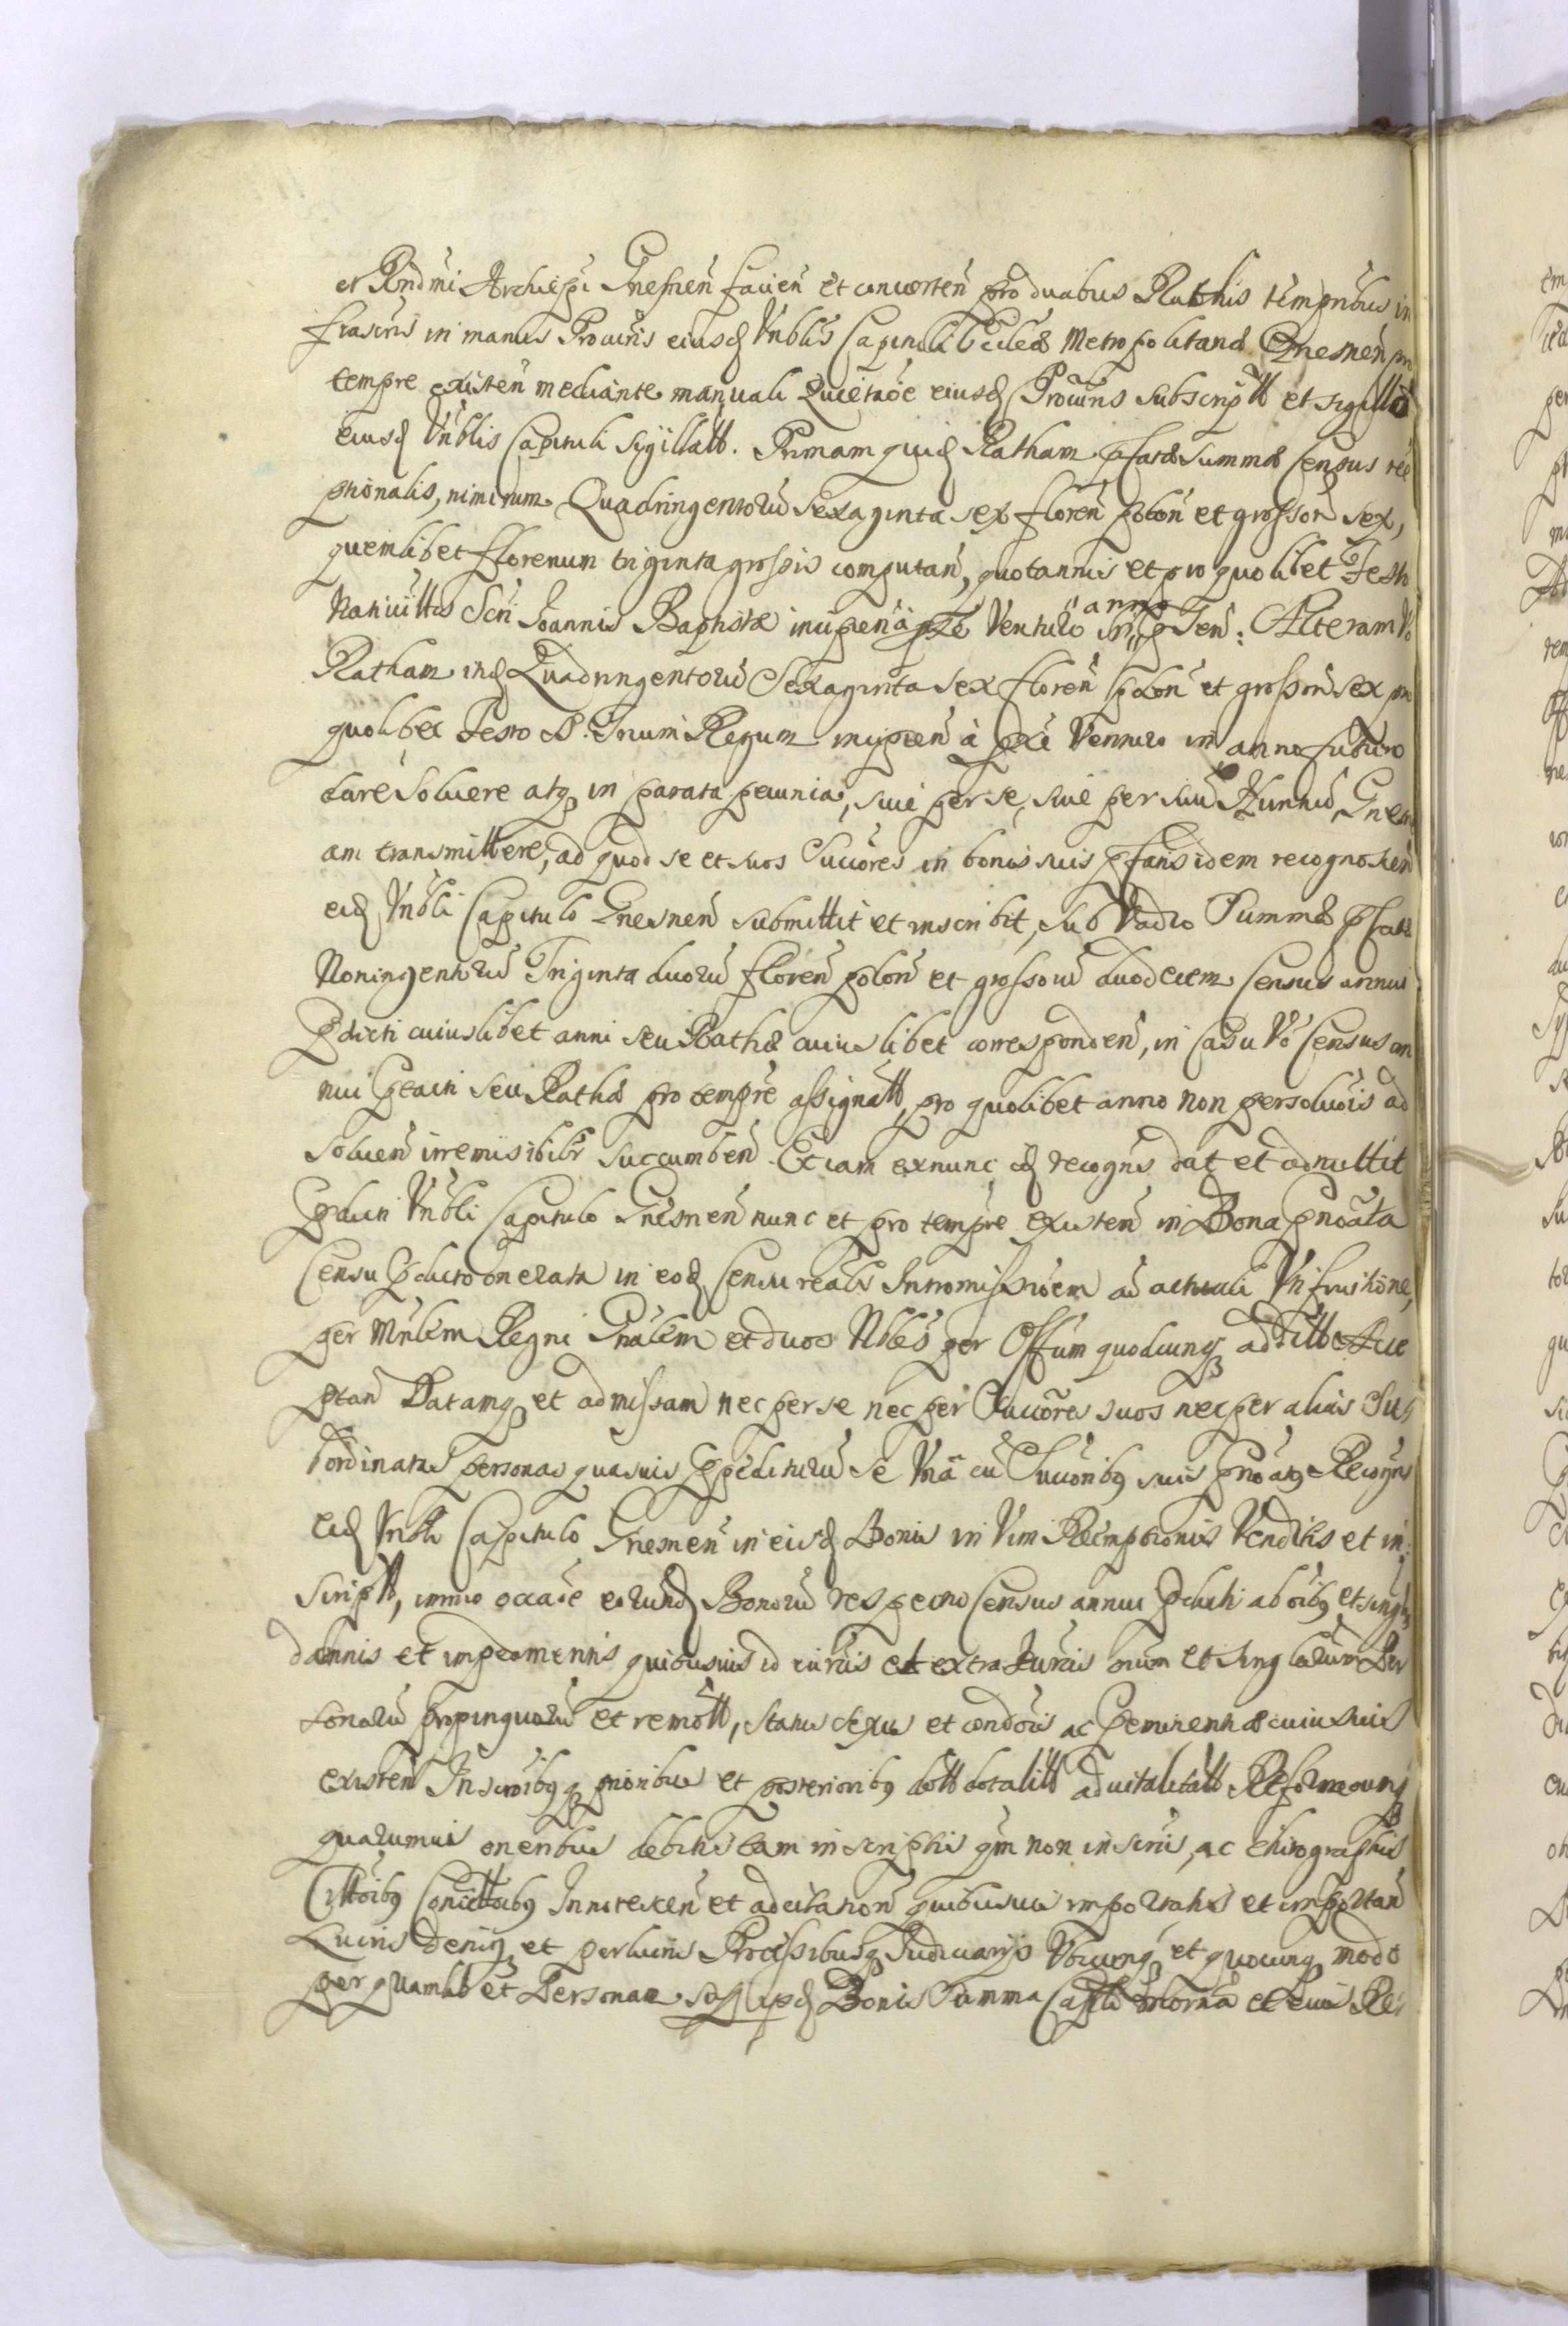 et Rndmi Archiepi Gnesnen facien et conuerten pro duabus Rathis tempribus in
frascris in manus Procuris eiusd Vnblis Capituli Ecclae Metropolitanae Gnesnen pro
tempre existen mediante manuali Quietaoe eiusd Procuris subscriptt et sigillo
eiusd Vnblis Capituli sigillatt. Primam quid Ratham pfatae Summae Census ree
ptionalis, nimirum Quadringentoru sexaginta sex floren polon et grossor sex,
quemlibet florenum triginta grossis computan, quotannis et pro quolibet Festo
Natiuittis Scti Joannis Baptistae incipien à Venturo anno Alteram Vo
Ratham itid Quadringentoru Sexaginta sex floren polon et grossor sex pro
quolibet Festo S. Trium Regum incipien à pxe Venturo in anno futuro
dare soluere atq in parata pecunia, siue per se, siue per suu Nuntiu, Gnesn
am transmittere, ad quod se et suos Succores in bonis suis pfatis idem recognoscen
eid Vnbli Capitulo Gnesnen submittit et inscribit, sub Vadio Summae pfatae
Noningentoru Triginta duoru floren polon et grossoru duodecem Census annui
Pdicti cuiuslibet anni seu Rathae cuiuslibet corresponden, in Casu Vo Census an
nui Pdicti seu Rathae pro tempre assignatt, pro quolibet anno non persoluois ad
soluen irremisibilr succumben. Etiam exnunc id recogns dat et admittit
Pdicti Vnbli Capitulo Gnesnen nunc et pro tempre existen in Bona pnoata
Censu Pdicto onerata in eod Censu realis Intromissioem ad actuale Vti fruitione,
per Mnlem Regni Gnalem et duos Nbles per Offum quodcunq ad Actt Acce
ptan Datamq et admissam nec per se nec per Succores suos nec per alias Sub
ordinatas personas quasuis Ppediturum se Vnà cu Succoribq suis pnoatq Recogns
eid Vnbli Capitulo Gnesnen in eisd Bonis in Vim Reemptionis Venditis et in
scriptt, immo occaoe eorund Bonoru respectu Census annui Pdicti ab oibq et singlis
damnis et impedimentis quibusuis id iuris et extra Juris oium et singlorum Per
sonaru propinquoru et remott, status sexus et condois ac peminentiae cuiusuis
existen Inscroibqq prioribus et posterioribq dott dotalitt aduitalitatt Reformaoumq
quarumuis oneribus debitis tam inscriptis qm non inscris, ac chirographis
Cittoibq Condttoibq Innotescen et adcitation quibusuis importatis et importan
Lucris deniq et perlucris Processibusq Judiciarijs Vbicunq et quocunq modo
per quamlibet Personam sup ipsd Bonis Summa Caplli et eius Re